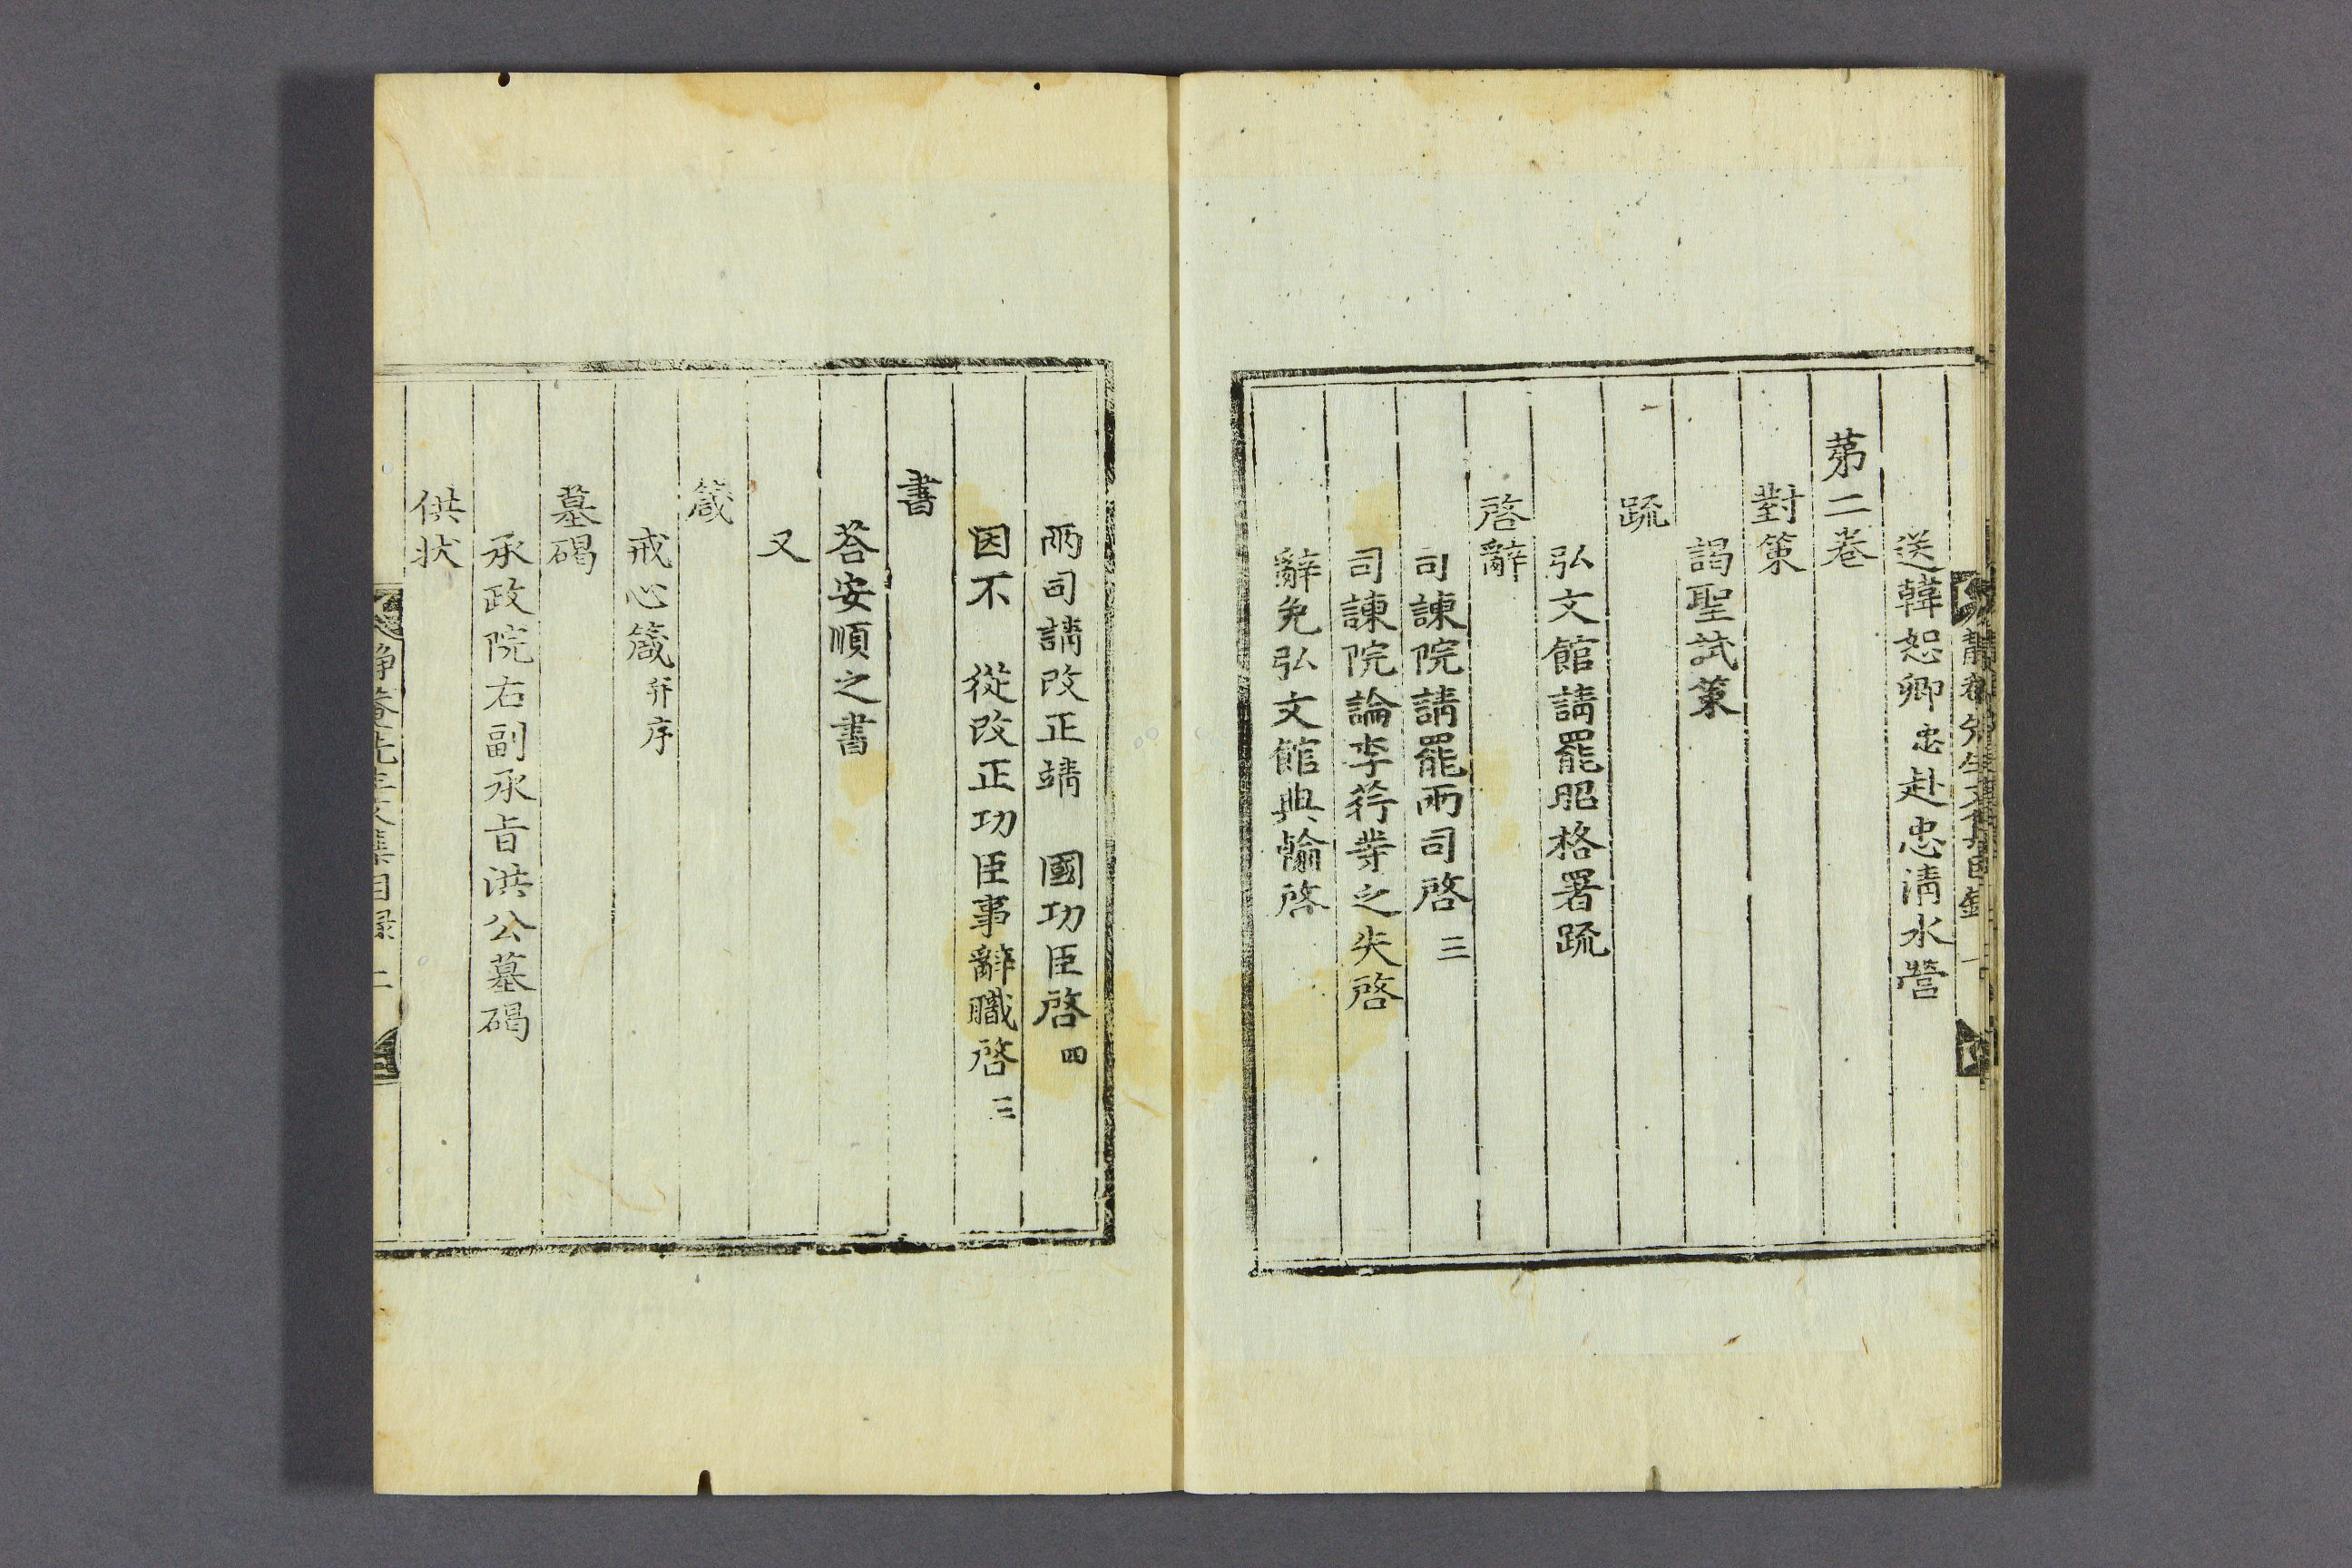 送韓恕卿忠赴忠淸水營
第二卷
對策
謁聖試策
疏
弘文館請罷昭格署疏
啓辭
司諫院請罷兩司啓 三
司諫院論李荇等之失啓
辭免弘文館典翰啓
兩司請改正靖 國功臣啓 四
因不 從改正功臣事辭職啓 三
書
答安順之書
又
箴
戒心箴 幷序
墓碣
承政院右副承旨洪公墓碣
供狀
靜菴先生文集目錄 二